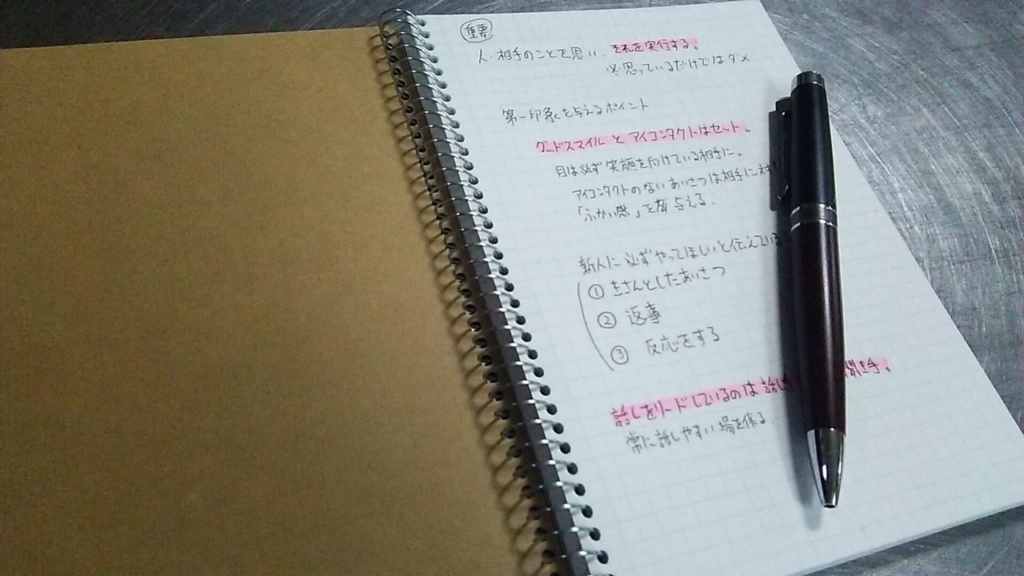 重要
人・相手のことを思い、それを実行する。
※思っているだけではダメ
第一印象を与えるポイント
グッドスマイルとアイコンタクトはセット。
目は必ず笑顔を向けている相手に。
アイコンタクトのないあいさつは相手に
「ふかい感」を与える。
新人に必ずやってほしいと伝えている
① きちんとしたあいさつ
② 返事
③ 反応をする
話しをリードしているのは話し 聞き手。
常に話しやすい場を作る。